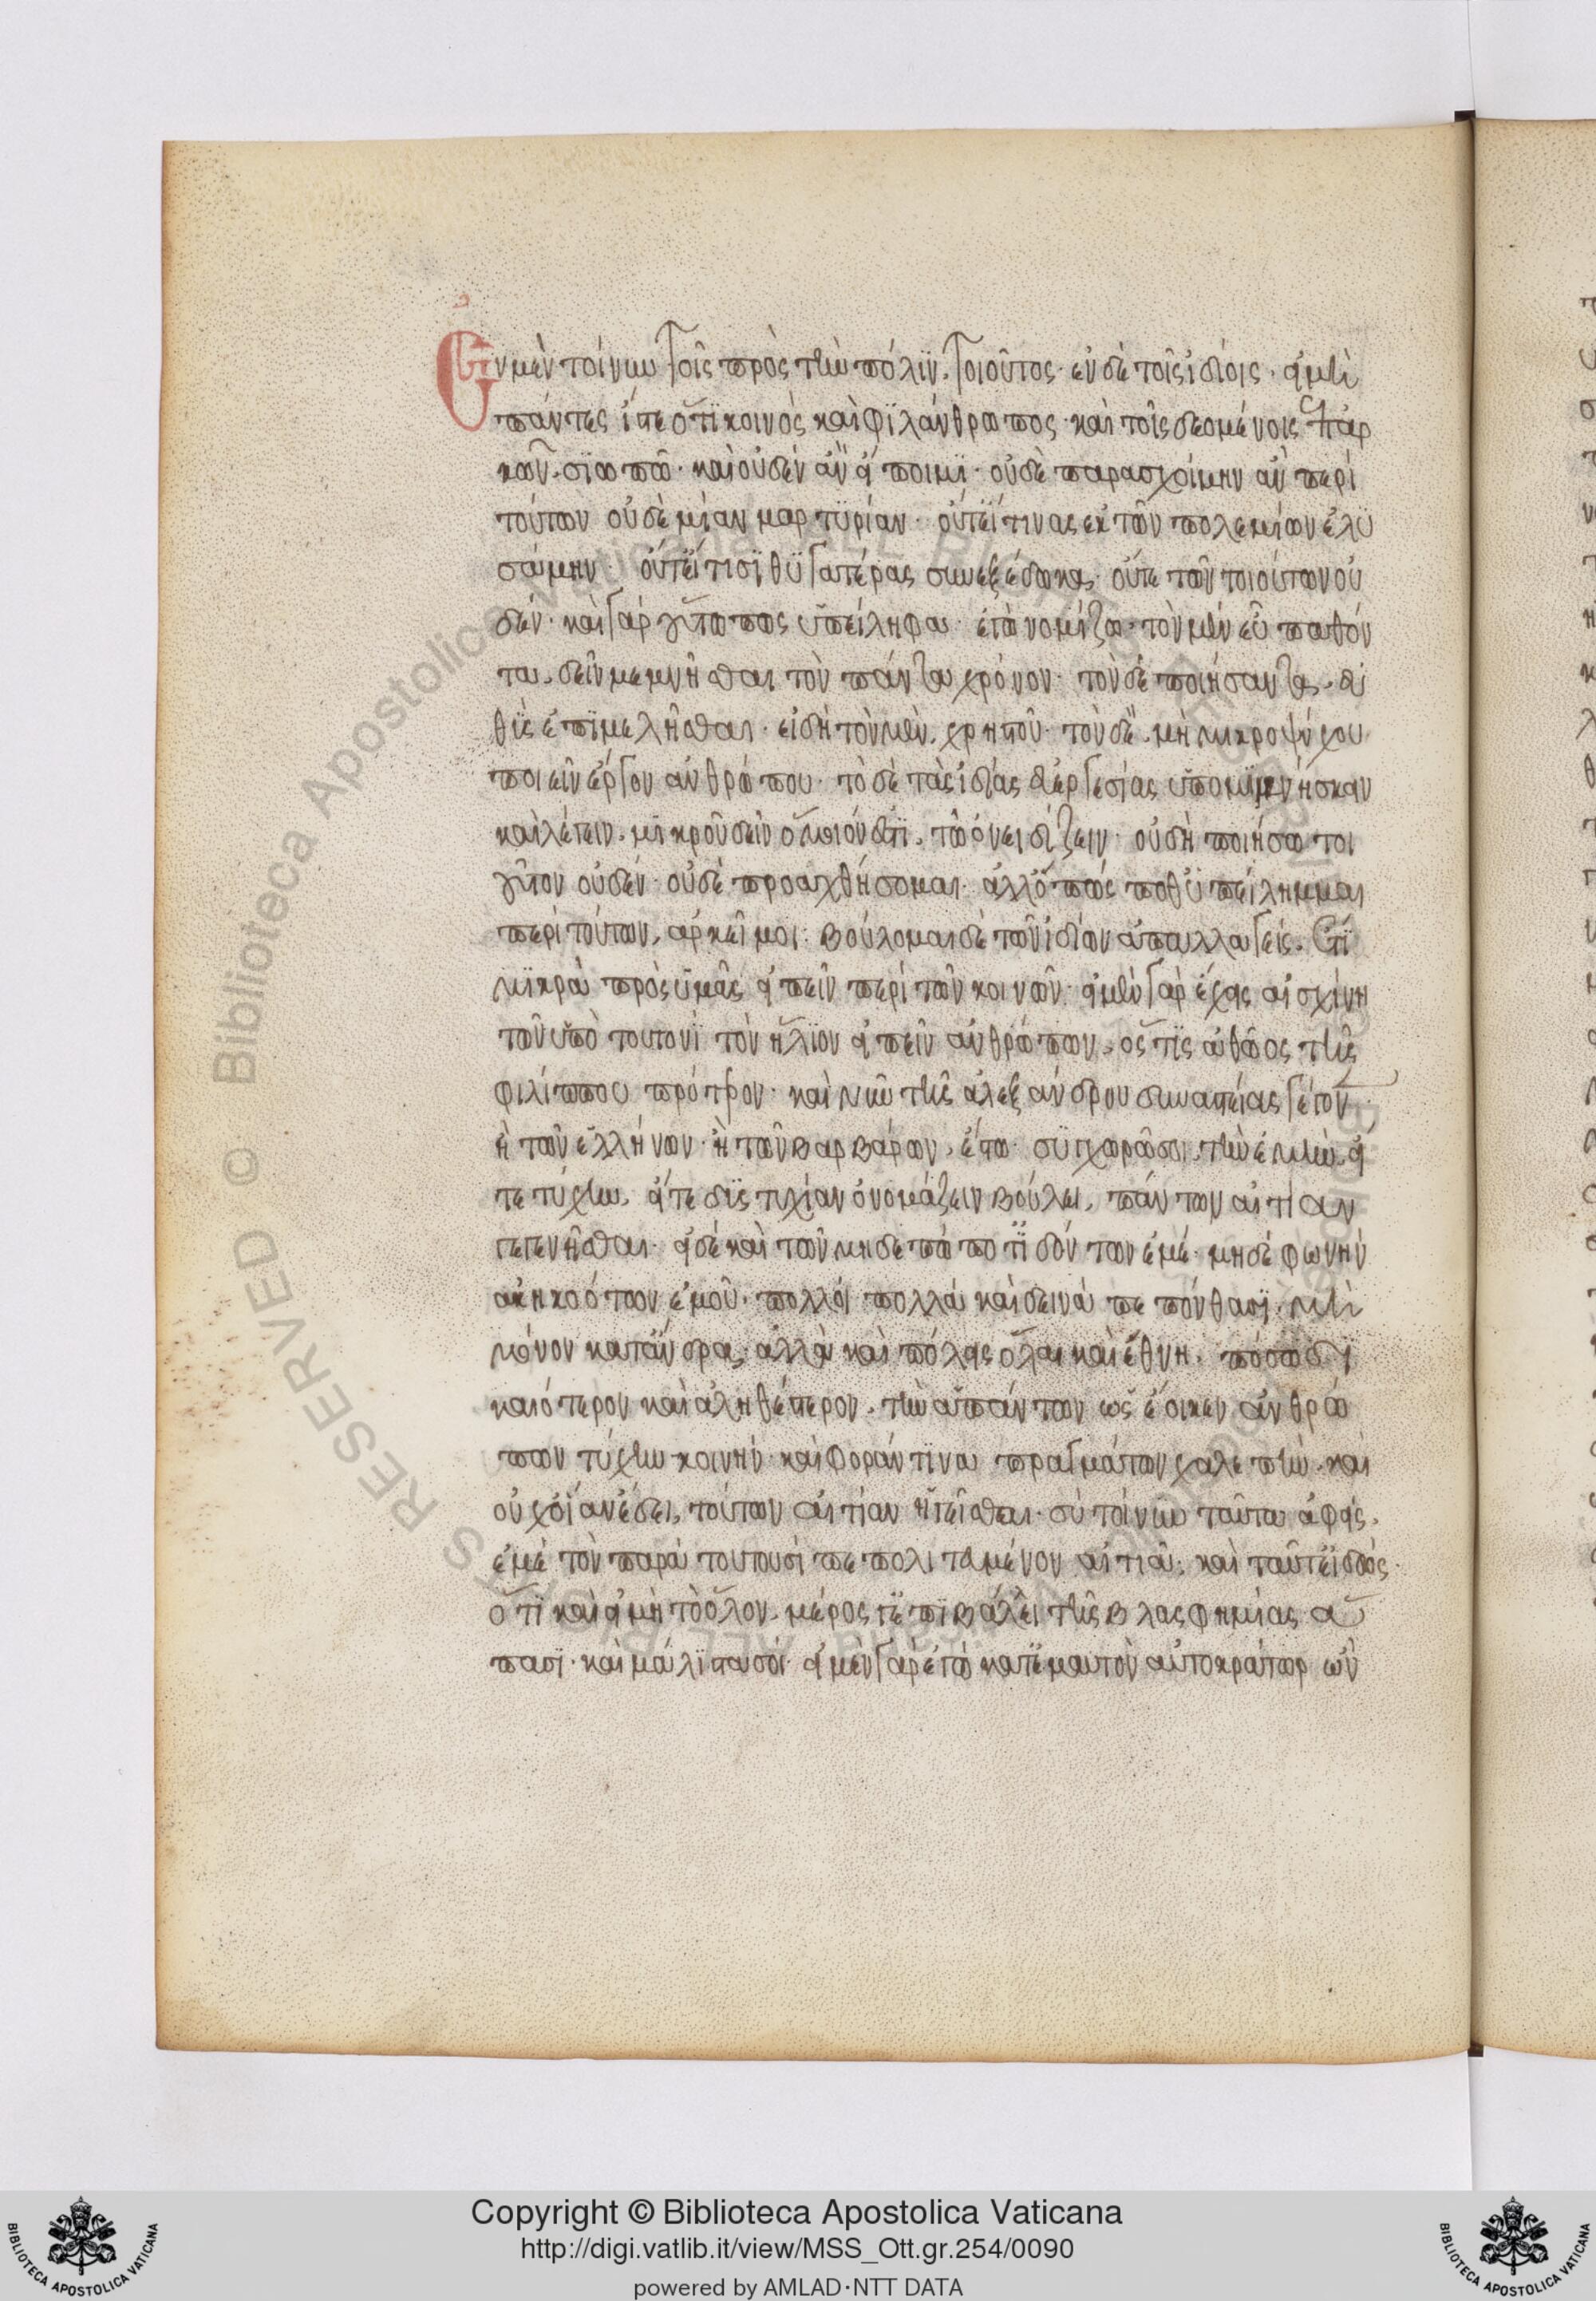 Ἐν μὲν τοίνυν τοῖς πρὸς τὴν πόλιν, τοιοῦτος· ἐν δὲ τοῖς ἰδίοις· εἰ μὴ
πάντες ἴστε ὅτι κοινὸς καὶ φιλάνθρωπος· καὶ τοῖς δεομένοις ἐπαρ
κῶν, σιωπῶ· καὶ οὐδὲν ἂν εἴποιμι· οὐδὲ παρασχοίμην ἂν περὶ
τούτων οὐδὲ μίαν μαρτυρίαν· οὔτ' εἴ τινας ἐκ τῶν πολεμίων ἐλυ
σάμην· οὔτ' εἴ τισι θυγατέρας συνεξέδωκα· οὔτε τῶν τοιούτων οὐ
δέν· καὶ γὰρ οὕτω πως ὑπείληφα· ἐγὼ νομίζω· τὸν μὲν εὖ παθόν
τα, δεῖν μεμνῆσθαι τὸν πάντα χρόνον· τὸν δὲ ποιήσαντα, εὐ
θὺς ἐπιμελῆσθαι· εἰ δὴ τὸν μὲν, χρηστοῦ· τὸν δὲ, μὴ μικροψύχου
ποιεῖν ἔργον ἀνθρώπου· τὸ δὲ τὰς ἰδίας εὐεργεσίας ὑπομιμνήσκειν
καὶ λέγειν, μικροῦ δεῖν ὅμοιόν ἐστι, τῷ ὀνειδίζειν· οὐ δὴ ποιήσω τοι
οῦτον οὐδέν· οὐδὲ προαχθήσομαι· ἀλλ' ὅπως ποθ' ὑπείλημμαι
περὶ τούτων, ἀρκεῖ μοι· βούλομαι δὲ τῶν ἰδίων ἀπαλλαγείς. Ἔτι
μικρὰ πρὸς ὑμᾶς εἰπεῖν περὶ τῶν κοινῶν· εἰ μὲν γὰρ ἔχεις αἰσχίνη
τῶν ὑπὸ τουτονὶ τὸν ἥλιον εἰπεῖν ἀνθρώπων, ὅστις ἀθῷος τῆς
φιλίππου πρότερον· καὶ νῦν τῆς ἀλεξάνδρου δυναστείας γέγον
ἢ τῶν ἑλλήνων· ἢ τῶν βαρβάρων, ἔστω· συγχωρῶ σοι, τὴν ἐμὴν, εἴ
τε τύχην, εἴτε δυστυχίαν ὀνομάζειν βούλει, πάντων αἰτίαν
γεγενῆσθαι· εἰ δὲ καὶ τῶν μηδεπώποτ' ἰδόντων ἐμέ· μηδὲ φωνὴν
ἀκηκοότων ἐμοῦ, πολλοὶ πολλὰ καὶ δεινὰ πεπόνθασι, μὴ
μόνον κατ' ἄνδρα, ἀλλὰ καὶ πόλεις ὅλαι καὶ ἔθνη, πόσῳ δι
καιότερον καὶ ἀληθέστερον, τὴν ἁπάντων ὡς ἔοικεν ἀνθρώ
πων τύχην κοινὴν· καὶ φοράν τινα πραγμάτων χαλεπὴν, καὶ
οὐχ οἵαν ἔδει, τούτων αἰτίαν ἡγεῖσθαι· σὺ τοίνυν ταῦτα ἀφείς,
ἐμὲ τὸν παρὰ τουτουσὶ πεπολιτευμένον αἰτιᾷ, καὶ ταῦτ' εἰδὼς,
ὅτι καὶ εἰ μὴ τὸ ὅλον, μέρος γ' ἐπιβάλλει τῆς βλασφημίας ἅ
πασι· καὶ μάλιστα σοί· εἰ μὲν γὰρ ἐγὼ κατ' ἐμαυτὸν αὐτοκράτωρ ὢν
Copyright © Biblioteca Apostolica Vaticana
http://digi.vatlib.it/view/MSS_Ott.gr.254/0090
powered by AMLAD·NTT DATA